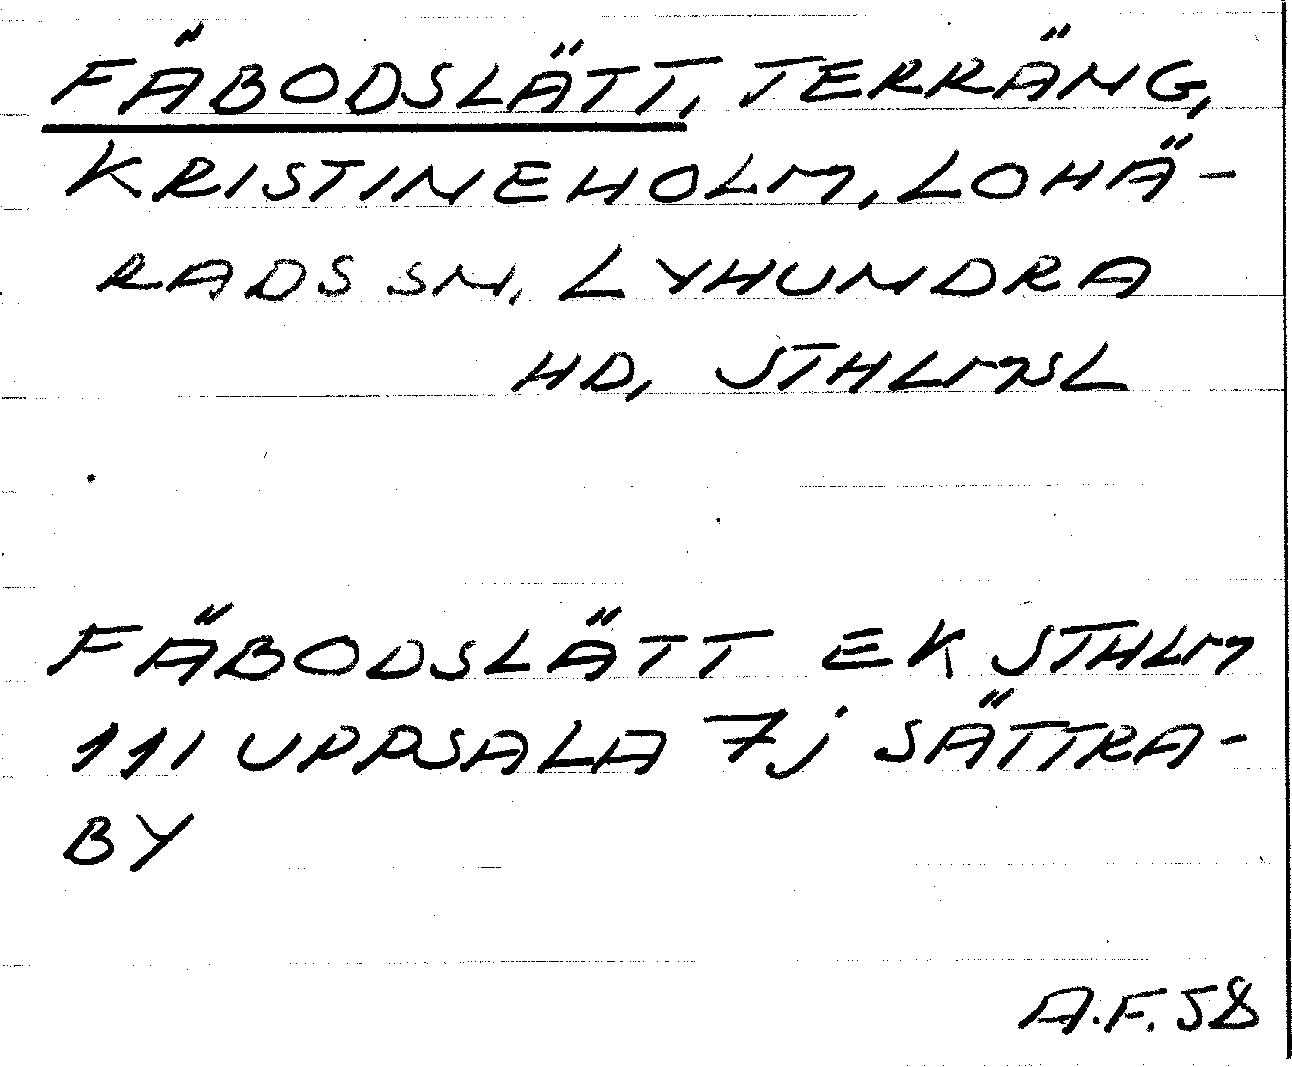 FÄBODSLÄTT, TERRÄNG,
KRISTINEHOLM, LOHÄ-
RADS SN, LYHUNDRA
HD, STHLMSL
FÄBODSLÄTT EK STHLM
111 UPPSALA 7j SÄTTRA-
BY
A.F. 58